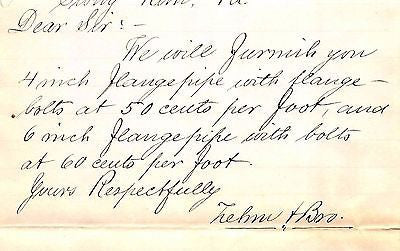 Dear Sir:-
We will furnish you
4 inch flange pipe with flange-
bolts at 50 cents per foot, and
6 inch flange pipe with bolts
at 60 cents per foot.
Yours Respectfully
& Bro.